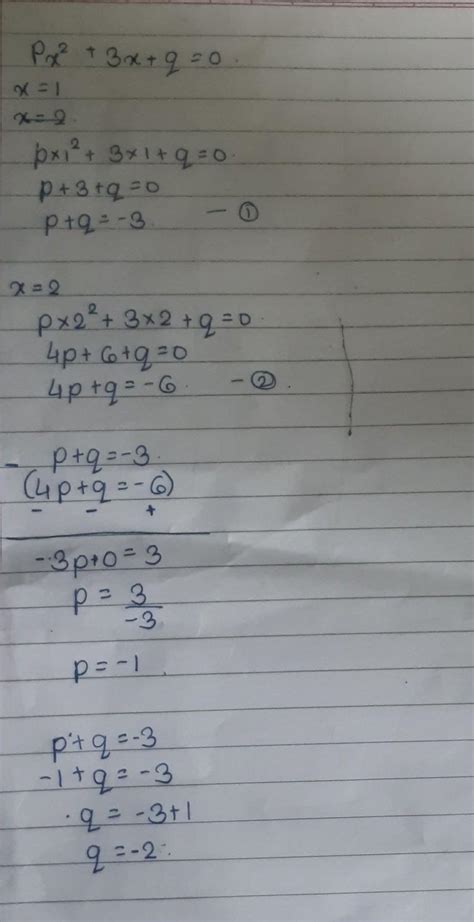 Px² + 3x + q = 0.
x = 1
x = 2
p×1² + 3×1 + q = 0.
p + 3 + q = 0
p + q = -3. - ①
x = 2
p×2² + 3×2 + q = 0.
4p + 6 + q = 0
4p + q = -6. - ②.
- p + q = -3.
(4p + q = -6)
- - +
-3p + 0 = 3
p = 3/-3
p = -1.
p + q = -3
-1 + q = -3
q = -3 + 1
q = -2.